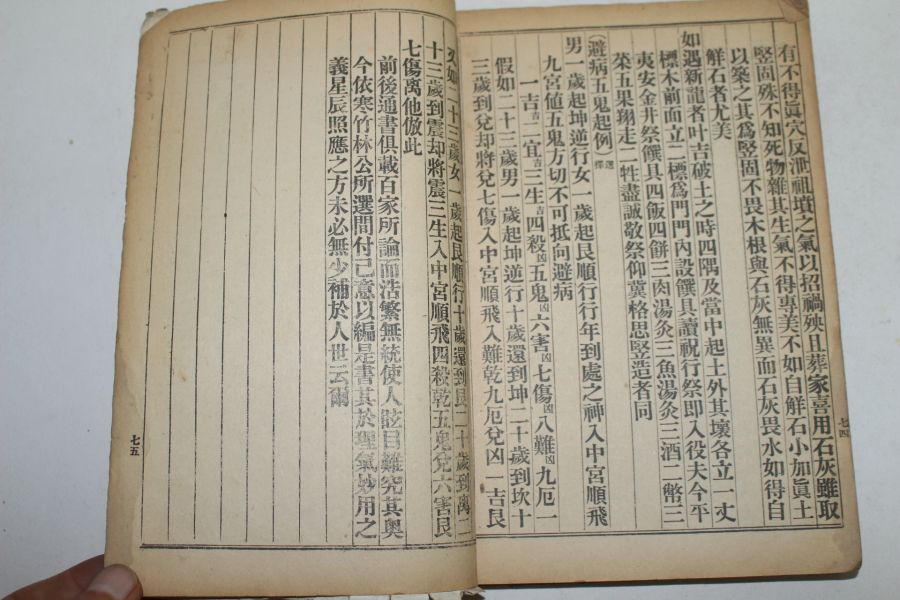 有不得眞穴反泄祖墳之氣以招禍殃且葬家喜用石灰雖取
竪固殊不知死物雜其生氣不得專美不如自鮮石小加眞土
以築之其爲竪固不畏木根與石灰無異而石灰畏水如得自
鮮石者尤美
如遇新龍者叶吉破土之時四隅及當中起土外其壞各立一丈
標木前面立二標爲門門內設饌具讀祝行祭即入役夫今平
夷安金井祭饌具四飯四餠三肉湯灸三魚湯灸三酒二幣三
菜五果翔走二牲盡誠敬祭仰冀格思竪造者同
(避病五鬼起例)選擇
男一歲起坤逆行女一歲起艮順行行年到處之神入中宮順飛
九宮値五鬼方切不可抵向避病
一吉吉二宜吉三生吉四殺凶五鬼凶六害凶七傷凶八難凶九厄一
假如二十三歲男一歲起坤逆行十歲還到坤二十歲到坎十
三歲到兌却將兌七傷入中宮順飛入難乾九厄兌凶一吉艮
七四
又如二十三歲女一歲起艮順行十歲還到艮二十歲到离二
十三歲到震却將震三生入中宮順飛四殺乾五鬼兌六害艮
七傷离他倣此
前後通書俱載百家所論而浩繁無統使人眩目難究其奧
今依寒竹林公所選間付己意以編是書其於理氣妙用之
義星辰照應之方未必無少補於人世云爾
七五